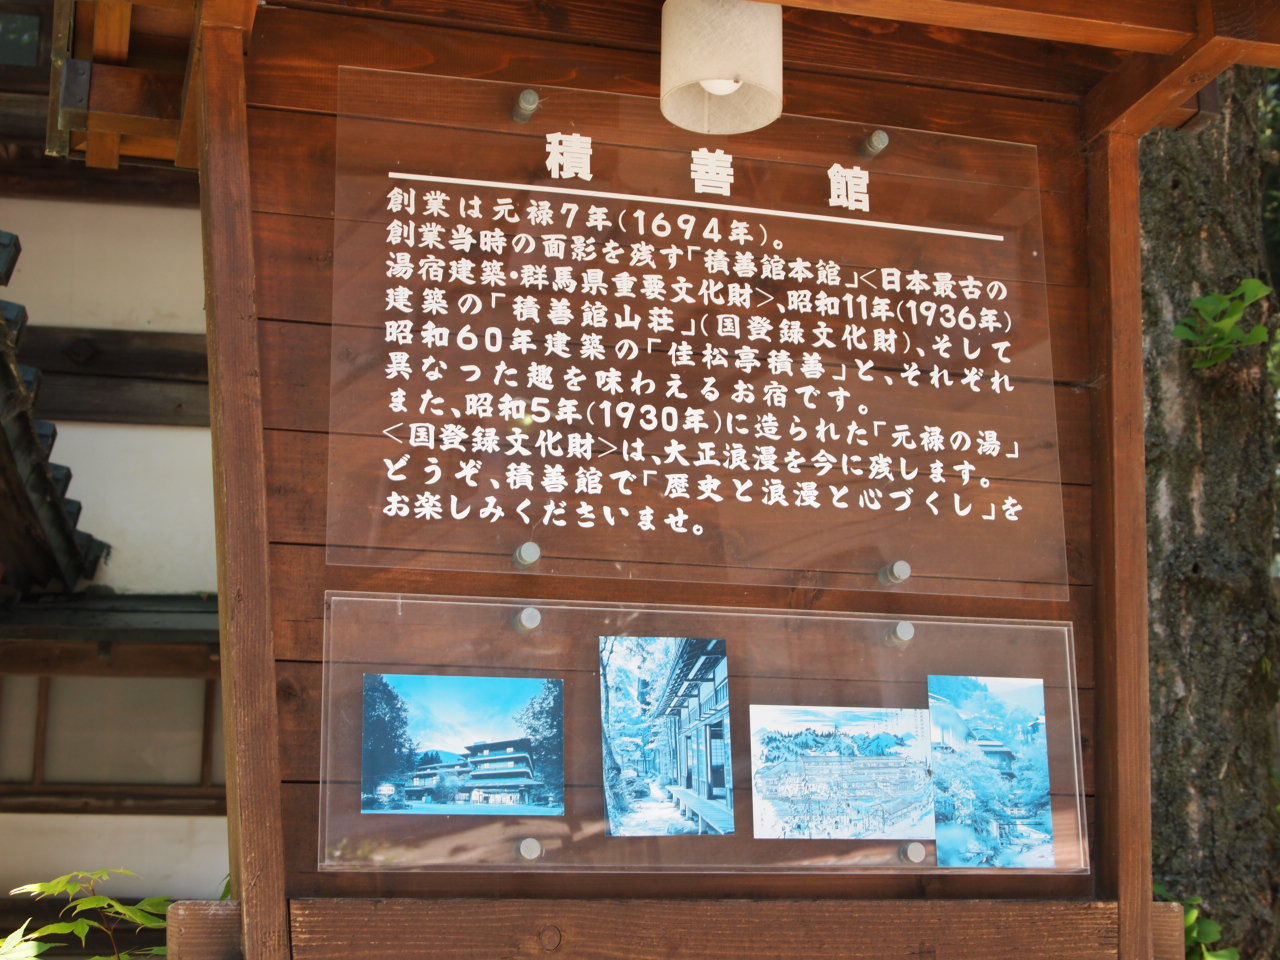 積善館
創業は元禄7年(1694年)。
創業当時の面影を残す「積善館本館」<日本最古の
湯宿建築・群馬県重要文化財>、昭和11年(1936年)
建築の「積善館山荘」(国登録文化財)、そして
昭和60年建築の「佳松亭積善」と、それぞれ
異なった趣を味わえるお宿です。
また、昭和5年(1930年)に造られた「元禄の湯」
<国登録文化財>は、大正浪漫を今に残します。
どうぞ、積善館で「歴史と浪漫と心づくし」を
お楽しみくださいませ。